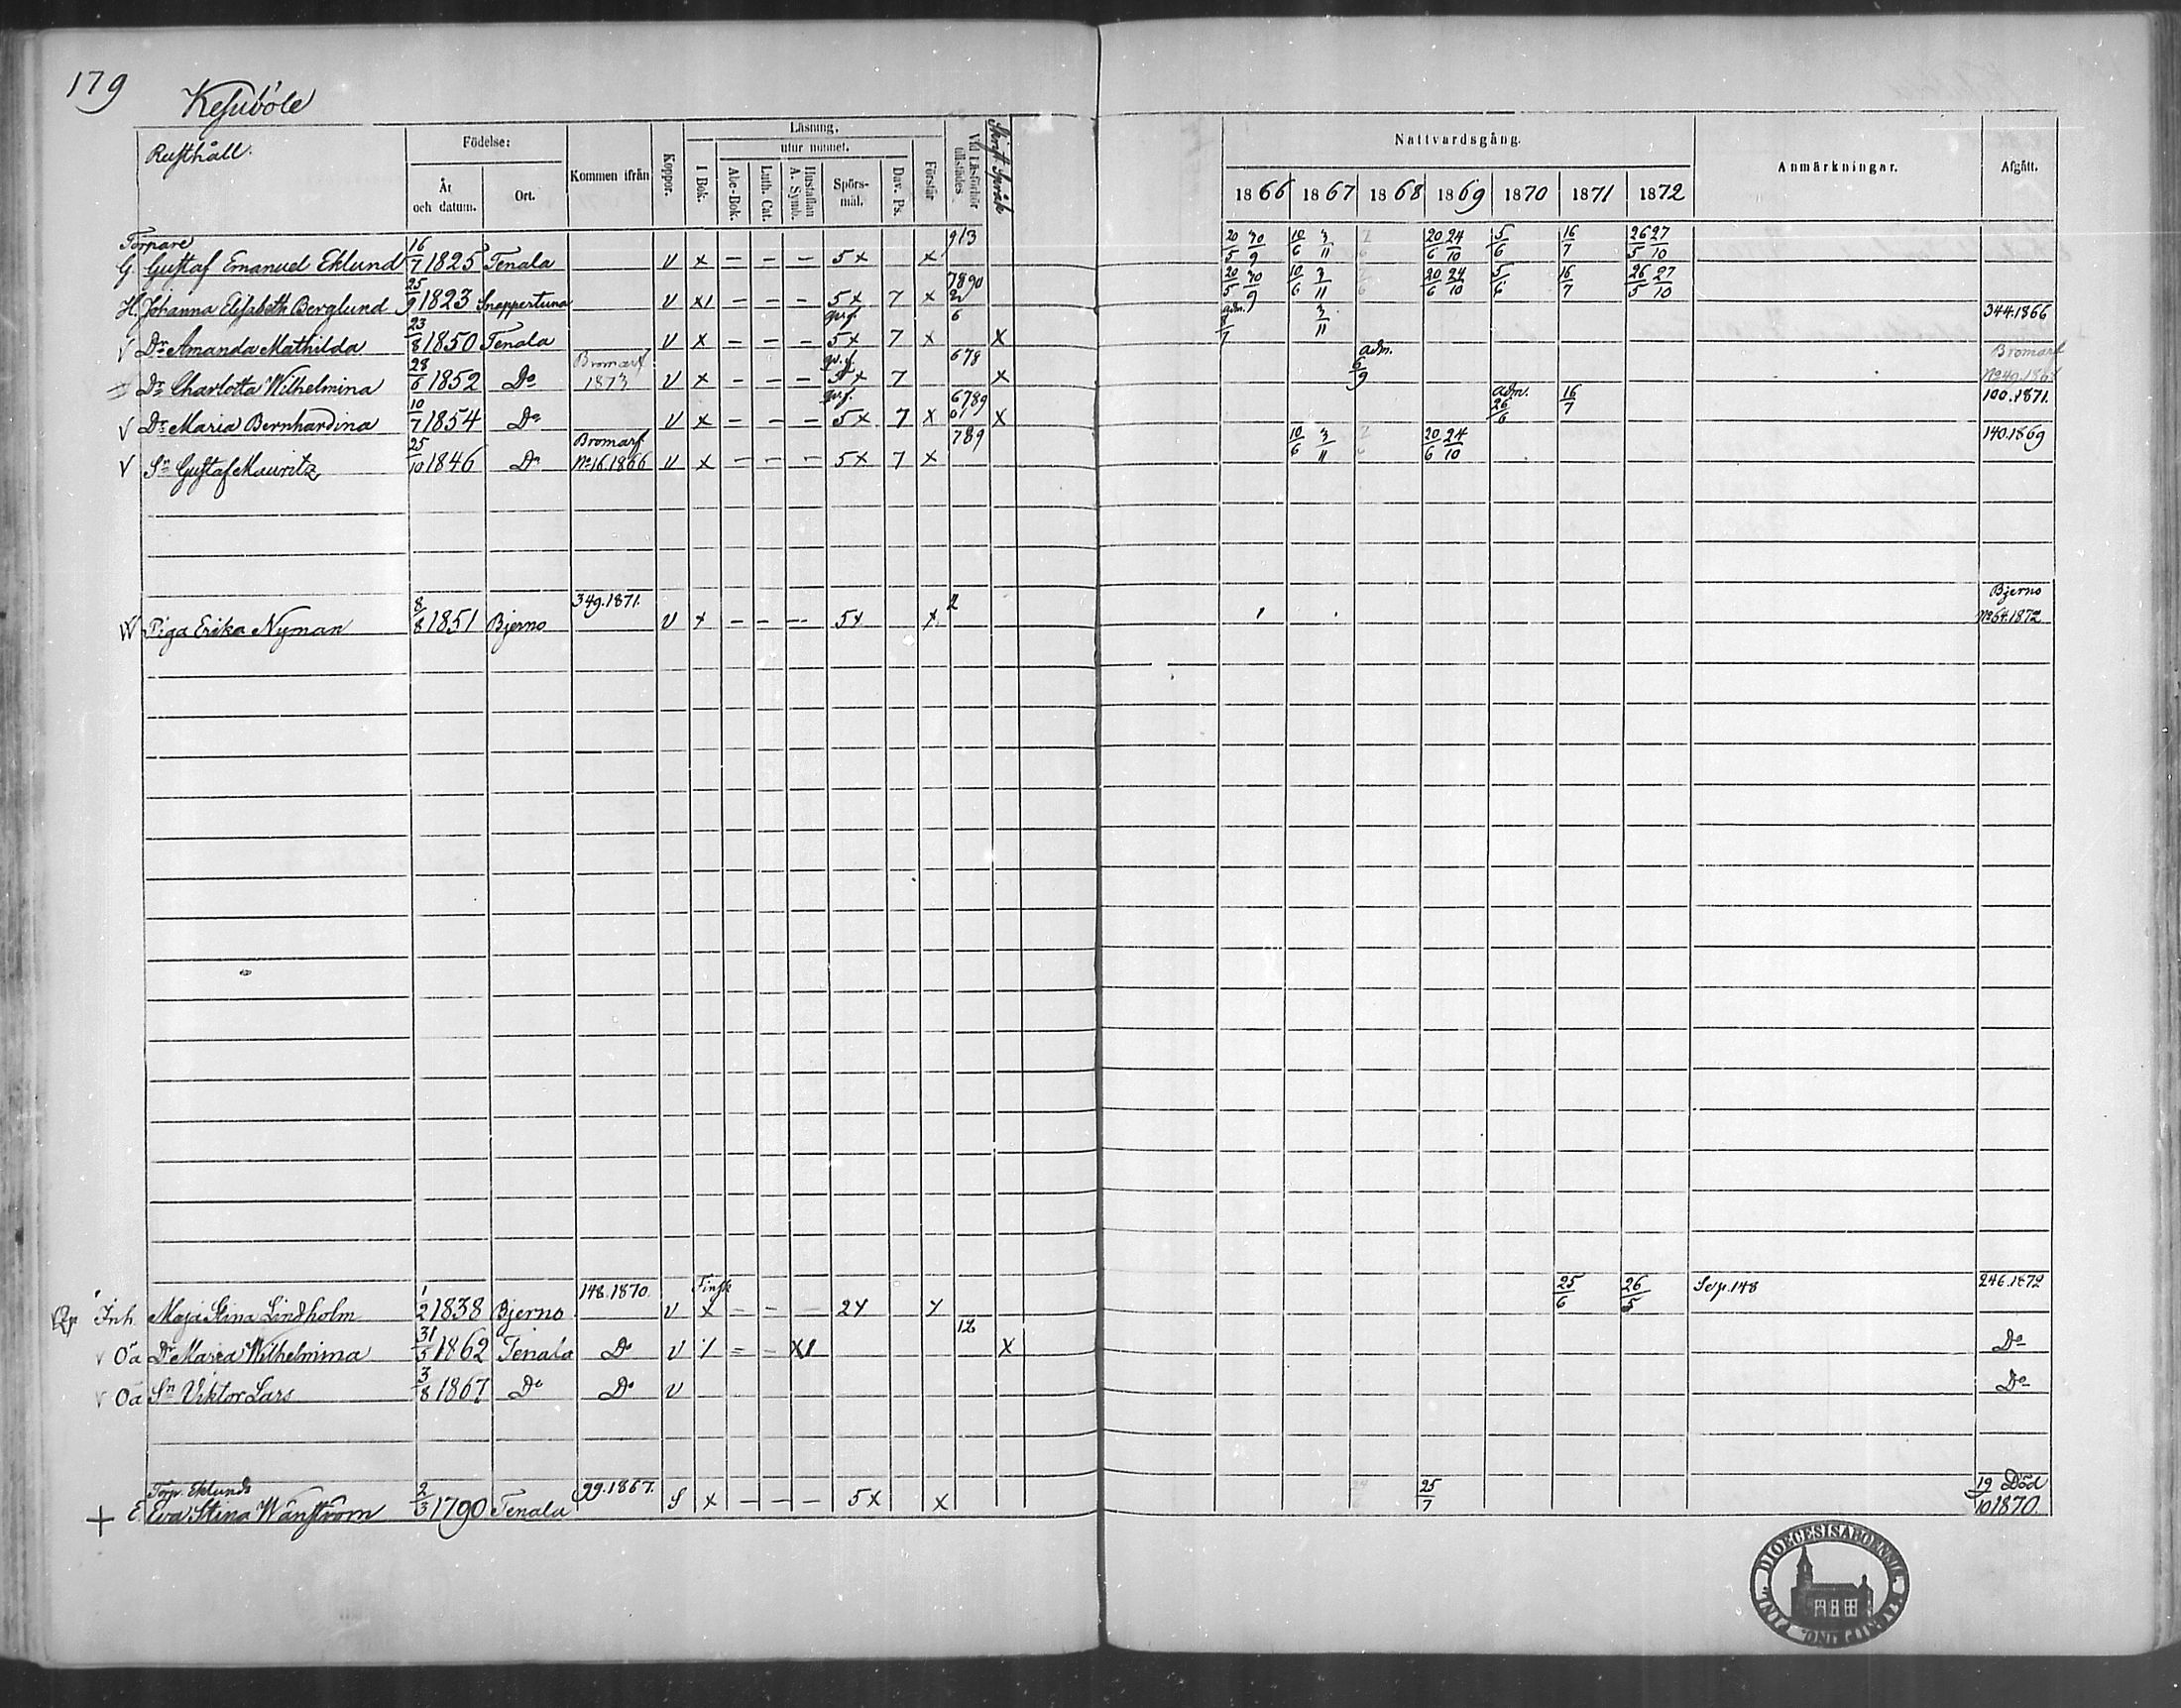 179
Kesuböle
Rusthåll.
Födelse:
År och datum.
Ort.
Kommen ifrån
Koppor.
Läsning,
I Bok.
utur minnet.
Abc-Bok.
Luth. Cat.
Hustaflan A. Symb.
Spörs-mål.
Dav. Ps.
Förstår
Vid Läsförhör tillstädes
Skrift. Språk
Nattvardsgång.
1866 1867 1868 1869 1870 1871 1872
Anmärkningar.
Afgått.
Torpare
G. Gustaf Emanuel Eklund 16/7 1825 Tenala v x – – – 5x x 913 20/5 30/9 10/6 3/11 2/6 20/6 24/10 5/6 16/7 26/5 27/10
H. Johanna Elisabeth Berglund 25/9 1823 Snappertuna v x1 – – – 5x 7 x 7890 2 20/5 30/9 10/6 3/11 2/6 20/6 24/10 5/6 16/7 26/5 27/10
V Dr Amanda Mathilda 23/8 1850 Tenala v x – – – 5x 7 x 6 x adm. 8/7 3/11 344.1866
Dr Charlotta Wilhelmina 28/6 1852 Do Bromarf 1873 v x – – – 5x 7 678 x adm. 6/9 Bromarf No 49.1868
V Dr Maria Bernhardina 10/7 1854 Do v x – – – 5x 7 x 6789 01 x adm. 26/6 16/7 100.1871.
V Sn Gustaf Mauritz 25/10 1846 Do Bromarf No 16.1866 v x – – – 5x 7 x 789 10/6 3/11 2/6 20/6 24/10 140.1869
W Piga Erika Nyman 8/8 1851 Bjerno 349.1871. v x – – – 5x x 2 Bjerno No 64.1872
Inh. Maja Stina Lindholm 1/2 1838 Bjerno 148.1870 v Finsk x – – – 2x x 25/6 26/5 Se p. 148 246.1872
v Oä Dr Maria Wilhelmina 31/5 1862 Tenala Do v 12 x Do
v Oä Sn Viktor Lars 3/8 1867 Do Do v Do
Torp. Eklunds
+ E. Eva Stina Wänström 2/3 1790 Tenala 99.1867. S x – – – 5x x 25/7 19/10 Död 1870.
DIOECESIS ABOENSIS